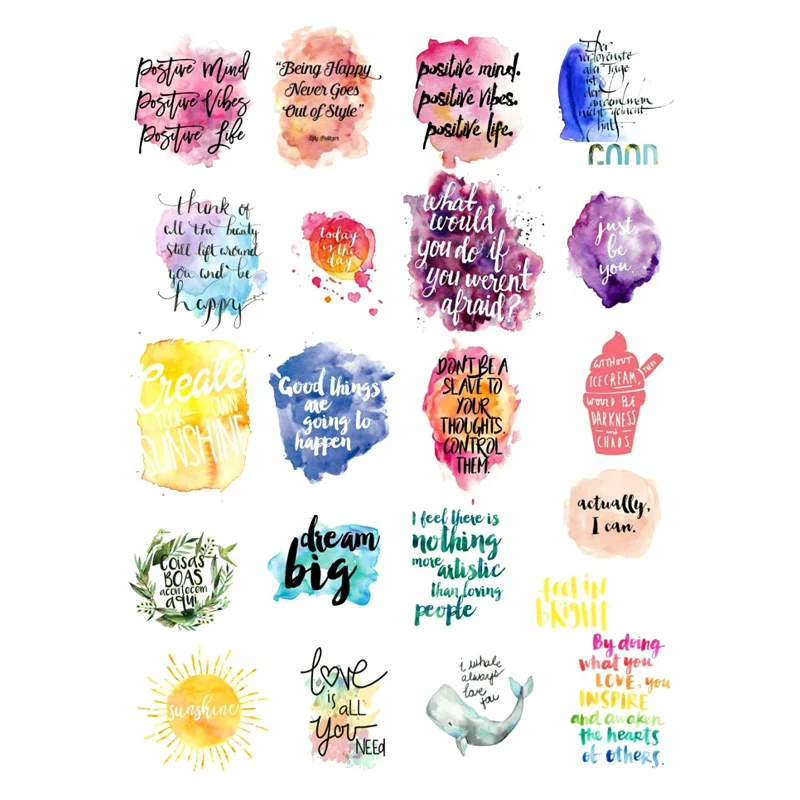 Positive Mind
Positive Vibes
Positive Life
"Being Happy
Never Goes
Out of Style"
Lilly Pulitzer
positive mind.
positive vibes.
positive life.
Der
verlorenste
aller Tage
ist
der
an dem man
nicht gelacht
hat.
GOOD
think of
all the beauty
still left around
you and be
happy
today
is the
day
what
would
you do if
you weren't
afraid?
just
be
you.
Create
YOUR OWN
SUNSHINE
Good things
are
going to
happen
DON'T BE A
SLAVE TO
YOUR
THOUGHTS
CONTROL
THEM.
WITHOUT
ICE CREAM, THERE
WOULD BE
DARKNESS
and
CHAOS.
actually,
I can.
COISAS
BOAS
acontecem
aqui
dream
big
I feel there is
nothing
more
artistic
than loving
people
feel in
bright
sunshine
LOVE
is ALL
you
NEED
i whale
always
love
you
By doing
what you
LOVE, you
INSPIRE
and awaken
the hearts
of others.